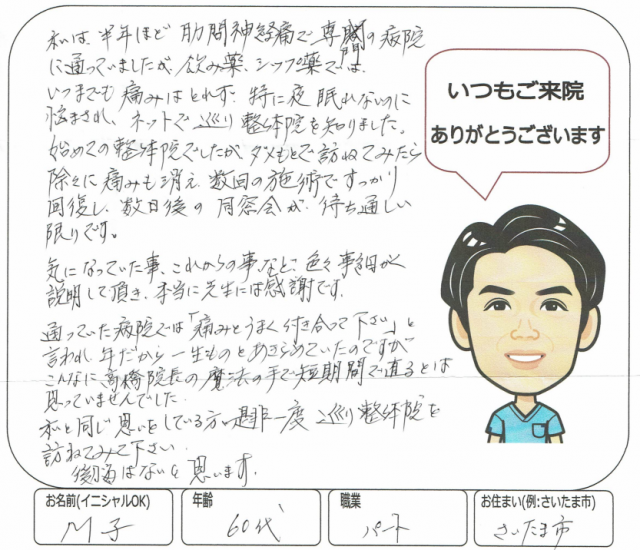 私は、半年ほど 肋間神経痛で専門の病院
に通っていましたが、飲み薬、シップ薬では、
いつまでも痛みはとれず、特に夜 眠れないのに
悩まされ、ネットで 巡り整体院を知りました。
始めての整体院でしたが ダメもとで訪ねてみたら
除々に痛みも消え 数回の施術ですっかり
回復し、数日後の 同窓会が、待ち遠しい
限りです。
気になっていた事、これからの事など、色々事細かく
説明して頂き、本当に先生には感謝です。
通っていた病院では「痛みとうまく付き合って下さい」と
言われ、年だから一生ものとあきらめていたのですが
こんなに高橋院長の魔法の手で短期間で直るとは
思っていませんでした
私と同じ思いをしている方、是非一度 巡り整体院を
訪ねてみて下さい
後悔はないと思います。
いつもご来院
ありがとうございます
お名前(イニシャルOK)
M子
年齢
60代
職業
パート
お住まい(例:さいたま市)
さいたま市